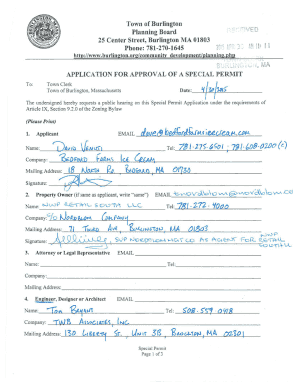 Town of Burlington
Planning Board
25 Center Street, Burlington MA 01803
Phone: 781-270-1645
http://www.burlington.org/community_development/planning.php
BURLINGTON, MA
APPLICATION FOR APPROVAL OF A SPECIAL PERMIT
To: Town Clerk
Town of Burlington, Massachusetts Date: 4/30/2015
The undersigned hereby requests a public hearing on this Special Permit Application under the requirements of
Article IX, Section 9.2.0 of the Zoning Bylaw
(Please Print)
1. Applicant EMAIL dave@bedfordfarmsicecream.com
Name: David Venuti Tel: 781-275-6501, 781-608-0200 (c)
Company: Bedford Farms Ice Cream
Mailing Address: 18 North Rd, Bedford, MA 01730
Signature:
2. Property Owner (if same as applicant, write "same") EMAIL
Name: NWP Retail South LLC Tel: 781-272-4000
Company: c/o Nordblom Company
Mailing Address: 71 Third Ave, Burlington, MA 01803
Signature: SVP Nordblom Mgt Co as Agent for NWP Retail South LLC
3. Attorney or Legal Representative EMAIL
Name: Tel:
Company:
Mailing Address:
4 Engineer, Designer or Architect EMAIL
Name: Tom Bryant Tel: 508-559-0418
Company: TWB Associates, Inc
Mailing Address: 130 Liberty St, Unit 3B, Brockton, MA 02301
Special Permit
Page 1 of 2